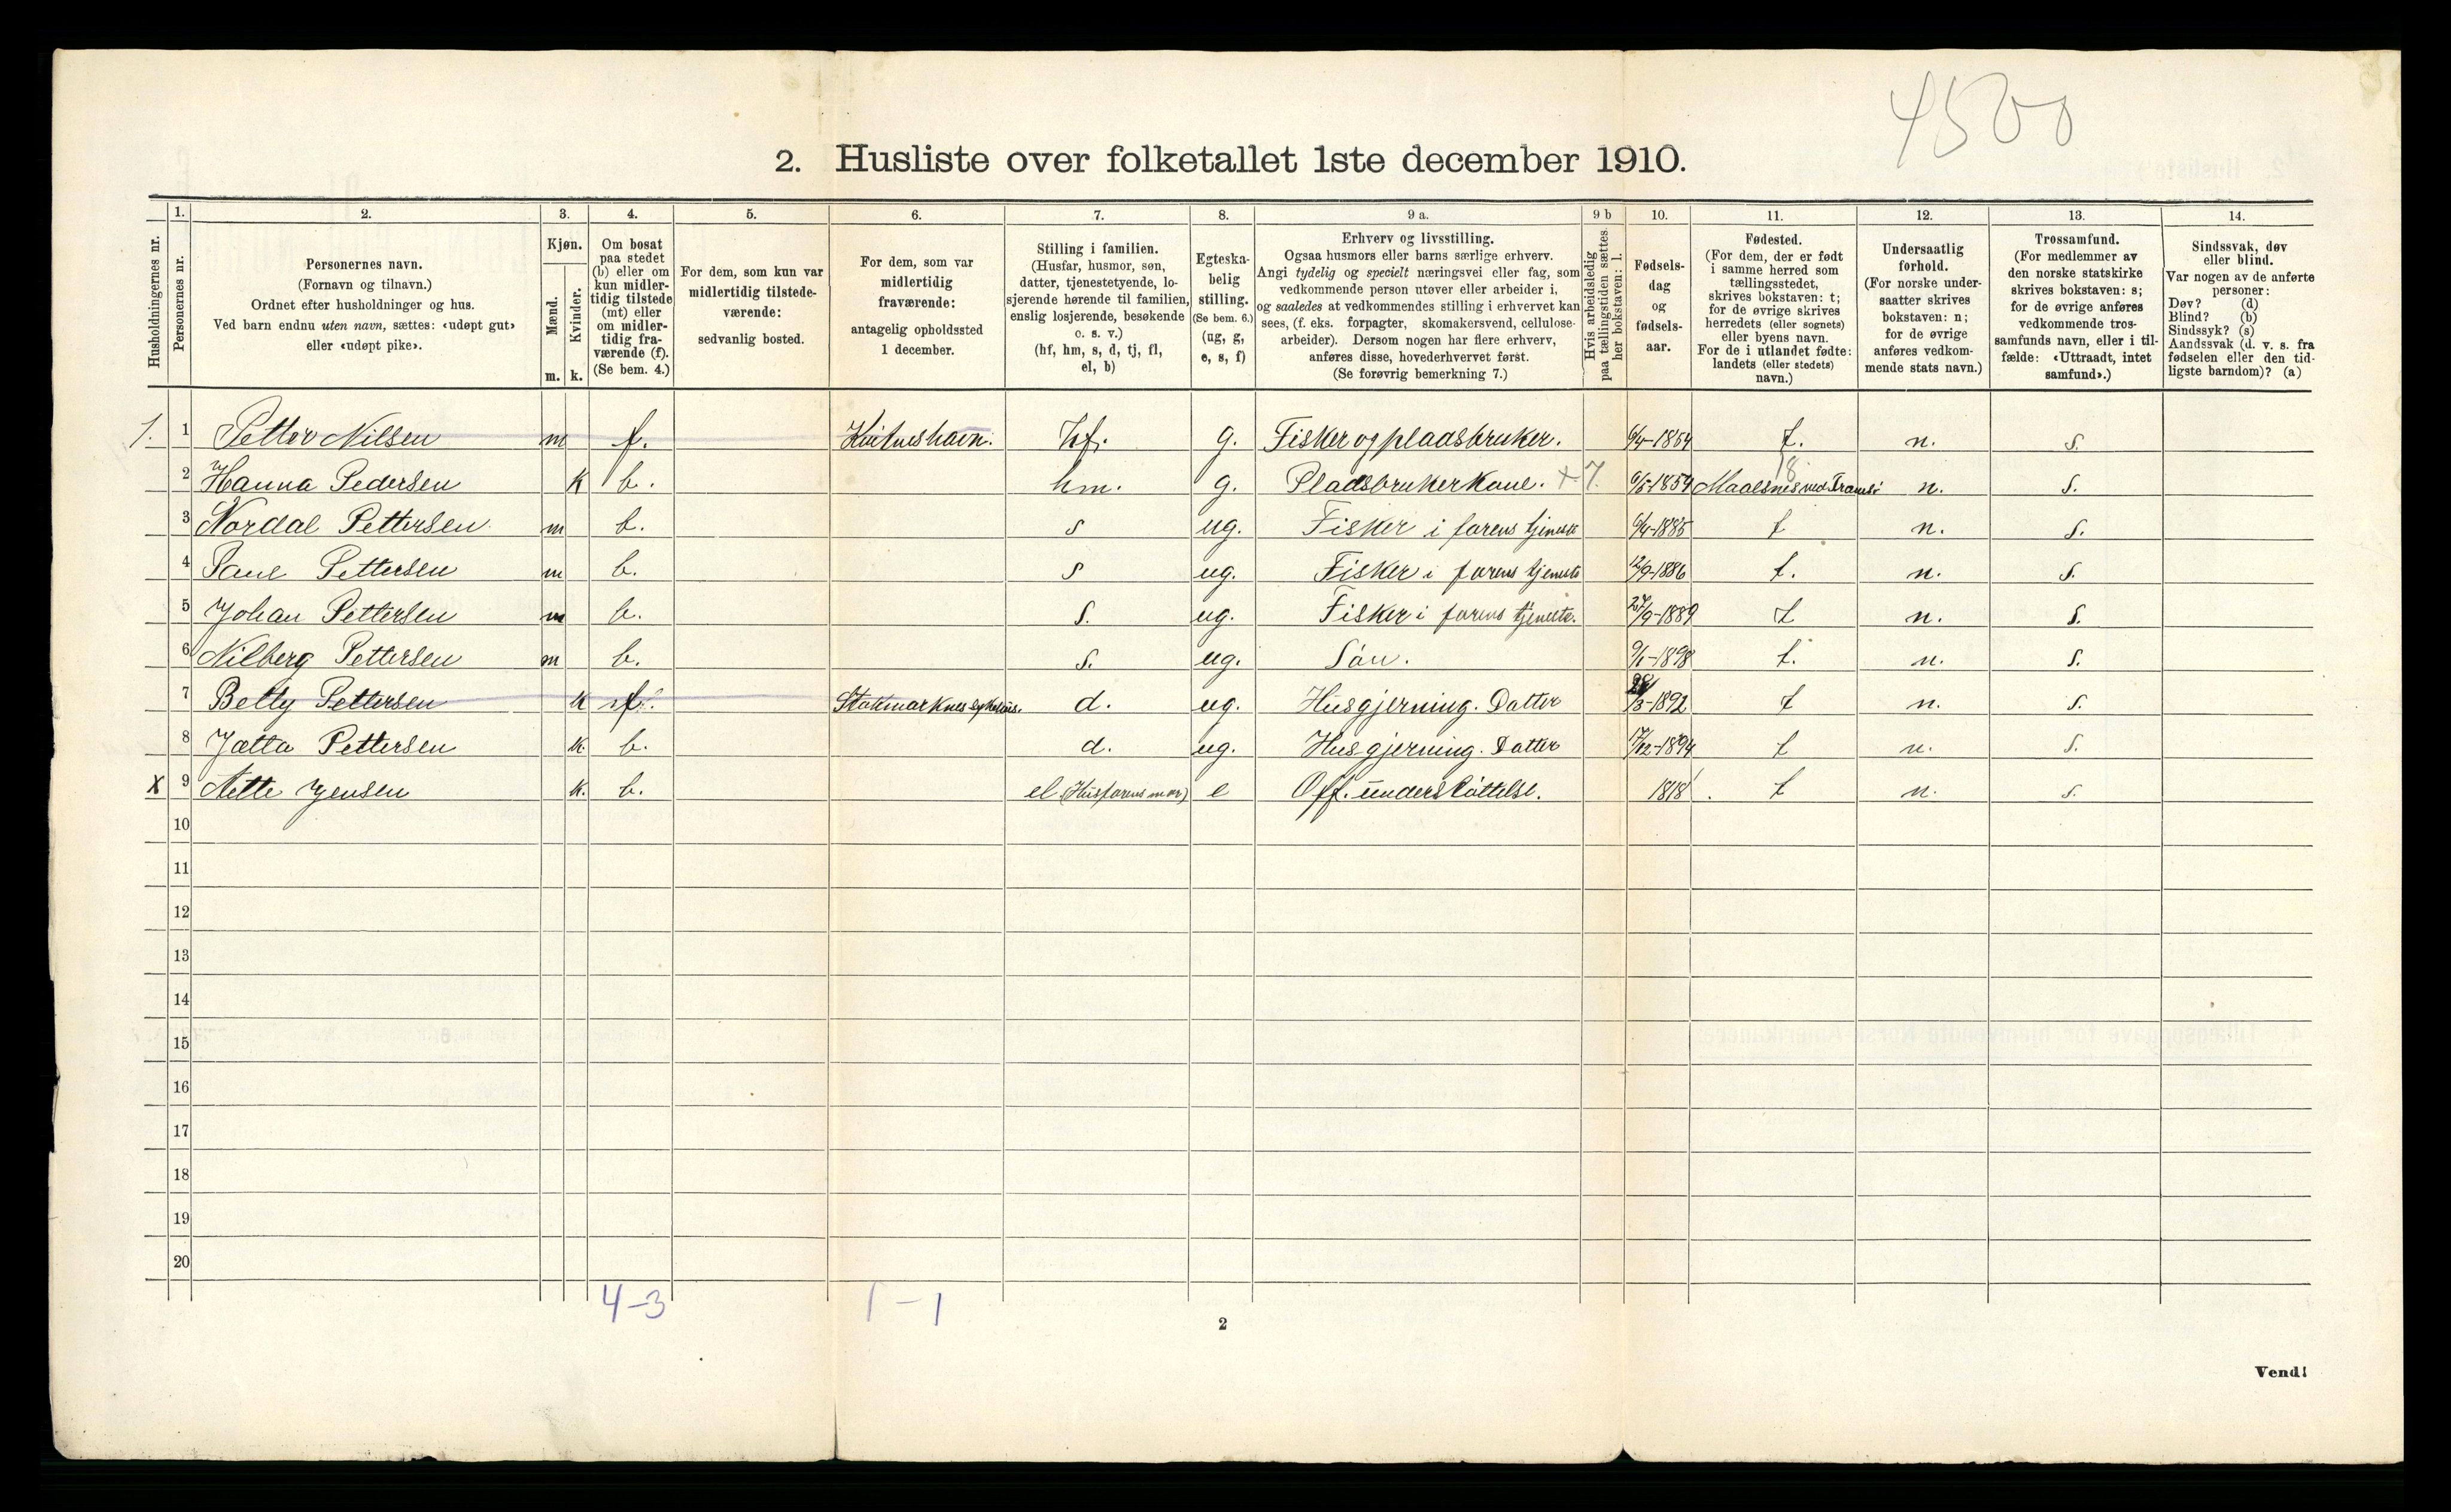 4500
2. Husliste over folketallet 1ste december 1910.
Husholdningernes nr.
1. 2. 3. 4. 5. 6. 7. 8. 9 a. 9 b 10. 11. 12. 13. 14.
Personernes nr.
Personernes navn.
(Fornavn og tilnavn.)
Ordnet efter husholdninger og hus.
Ved barn endnu uten navn, sættes: «udøpt gut»
eller «udøpt pike».
Kjøn.
Mænd.
Kvinder.
m. k.
Om bosat
paa stedet
(b) eller om
kun midler-
tidig tilstede
(mt) eller
om midler-
tidig fra-
værende (f).
(Se bem. 4.)
For dem, som kun var
midlertidig tilstede-
værende:
sedvanlig bosted.
For dem, som var
midlertidig
fraværende:
antagelig opholdssted
1 december.
Stilling i familien.
(Husfar, husmor, søn,
datter, tjenestetyende, lo-
sjerende hørende til familien,
enslig losjerende, besøkende
o. s. v.)
(hf, hm, s, d, tj, fl,
el, b)
Egteska-
belig
stilling.
(Se bem. 6.)
(ug, g,
e, s, f)
Erhverv og livsstilling.
Ogsaa husmors eller barns særlige erhverv.
Angi tydelig og specielt næringsvei eller fag, som
vedkommende person utøver eller arbeider i,
og saaledes at vedkommendes stilling i erhvervet kan
sees, (f. eks. forpagter, skomakersvend, cellulose-
arbeider). Dersom nogen har flere erhverv,
anføres disse, hovederhvervet først.
(Se forøvrig bemerkning 7.)
Hvis arbeidsledig
paa tællingstiden sættes
her bokstaven: l.
Fødsels-
dag
og
fødsels-
aar.
Fødested.
(For dem, der er født
i samme herred som
tællingsstedet,
skrives bokstaven: t;
for de øvrige skrives
herredets (eller sognets)
eller byens navn.
For de i utlandet fødte:
landets (eller stedets)
navn.)
Undersaatlig
forhold.
(For norske under-
saatter skrives
bokstaven: n;
for de øvrige
anføres vedkom-
mende stats navn.)
Trossamfund.
(For medlemmer av
den norske statskirke
skrives bokstaven: s;
for de øvrige anføres
vedkommende tros-
samfunds navn, eller i til-
fælde: «Uttraadt, intet
samfund».)
Sindssvak, døv
eller blind.
Var nogen av de anførte
personer:
Døv? (d)
Blind? (b)
Sindssyk? (s)
Aandssvak (d. v. s. fra
fødselen eller den tid-
ligste barndom)? (a)
1. 1 Petter Nilsen m f. hf. g. Fisker og pladsbruker. 6/4-1854 t. n. s.
2 Hanna Pedersen k b. hm. g. Pladsbrukerkone. +7. 6/5-1854 18 n. s.
3 Nordal Pettersen m b. s ug. Fisker i farens tjeneste 6/4-1885 t n. s.
4 Paul Pettersen m b. s ug. Fisker i farens tjeneste 12/9-1886 t. n. s.
5 Johan Pettersen m b. s. ug. Fisker i farens tjeneste. 27/9-1889 t n. s.
6 Nilberg Pettersen m b. s. ug. Søn. 9/1-1898 t. n. s.
7 Betty Pettersen k f. Stokmarknes sykehus. d. ug. Husgjerning. Datter /3-1892 t n. s.
8 Jætta Pettersen k. b. d. ug. Husgjerning. Datter 17/12-1894 t n. s.
X 9 Jensen k. b. el (Husfarens mor) e Off. understøttelse. 1818 t n. s.
10
11
12
13
14
15
16
17
18
19
20
4-3 1-1
2
Vend!